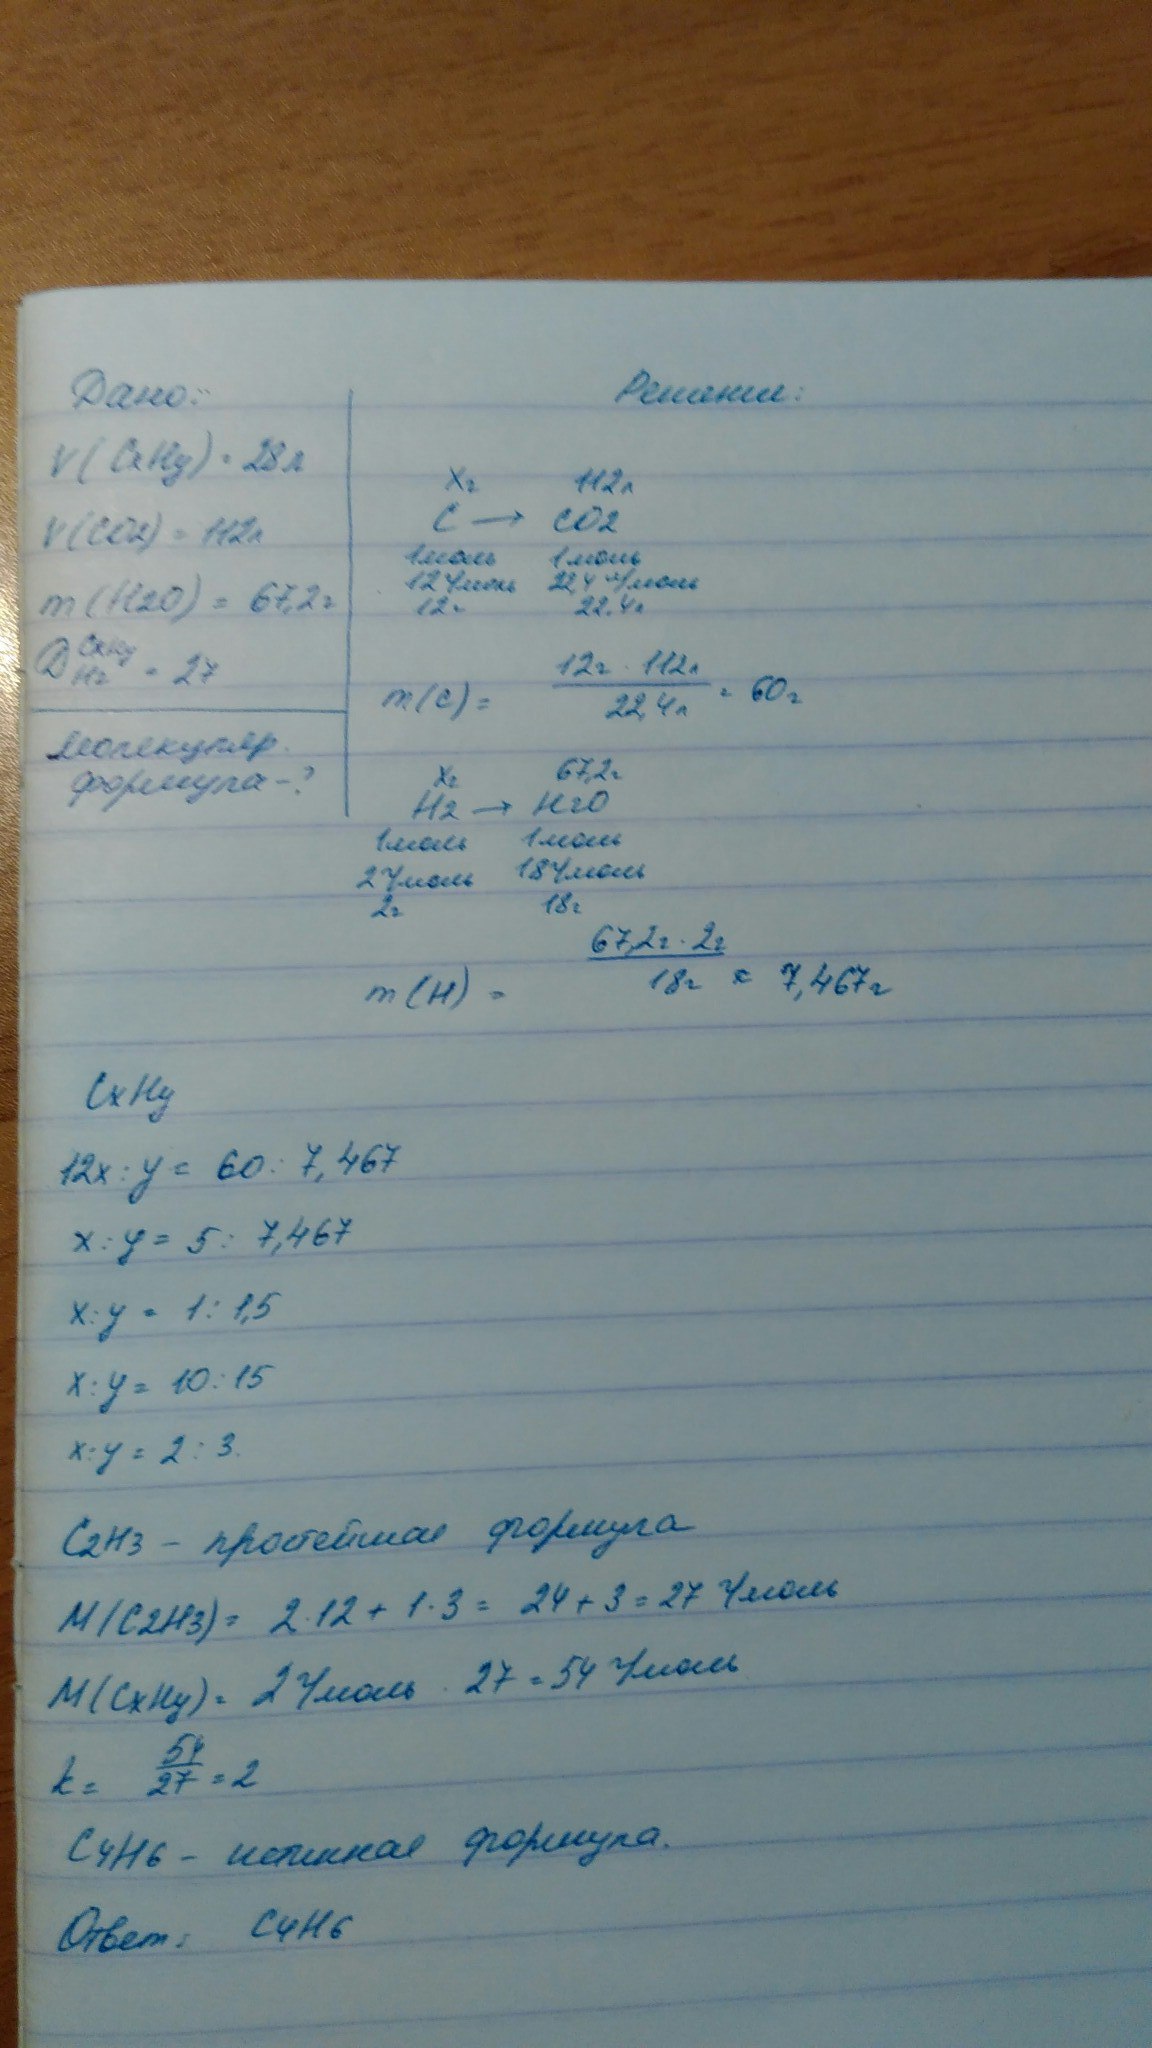 Дано:
V(CxHy) = 28л
V(CO2) = 112л
m(H2O) = 67,2г
D CxHy H2 = 27
Молекуляр.
формула - ?
Решение:
Xг 112л
C → CO2
1моль 1моль
12г/моль 22,4 л/моль
12г 22,4л
m(C) = 12г · 112л / 22,4л = 60г
Xг 67,2г
H2 → H2O
1моль 1моль
2г/моль 18г/моль
2г 18г
m(H) = 67,2г · 2г / 18г ≈ 7,467г
CxHy
12x : y = 60 : 7,467
x : y = 5 : 7,467
x : y = 1 : 1,5
x : y = 10 : 15
x : y = 2 : 3.
C2H3 - простейшая формула
M(C2H3) = 2·12 + 1·3 = 24 + 3 = 27 г/моль
M(CxHy) = 2г/моль · 27 = 54 г/моль
k = 54/27 = 2
C4H6 - истинная формула.
Ответ: C4H6